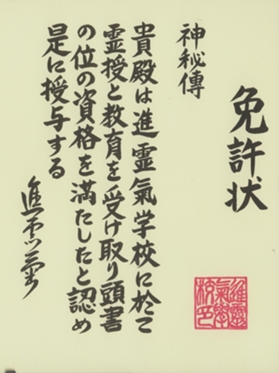 免許状
神秘傳
貴殿は進霊氣学校に於て
霊授と教育を受け取り頭書
の位の資格を満たしたと認め
是に授与する
進霊氣